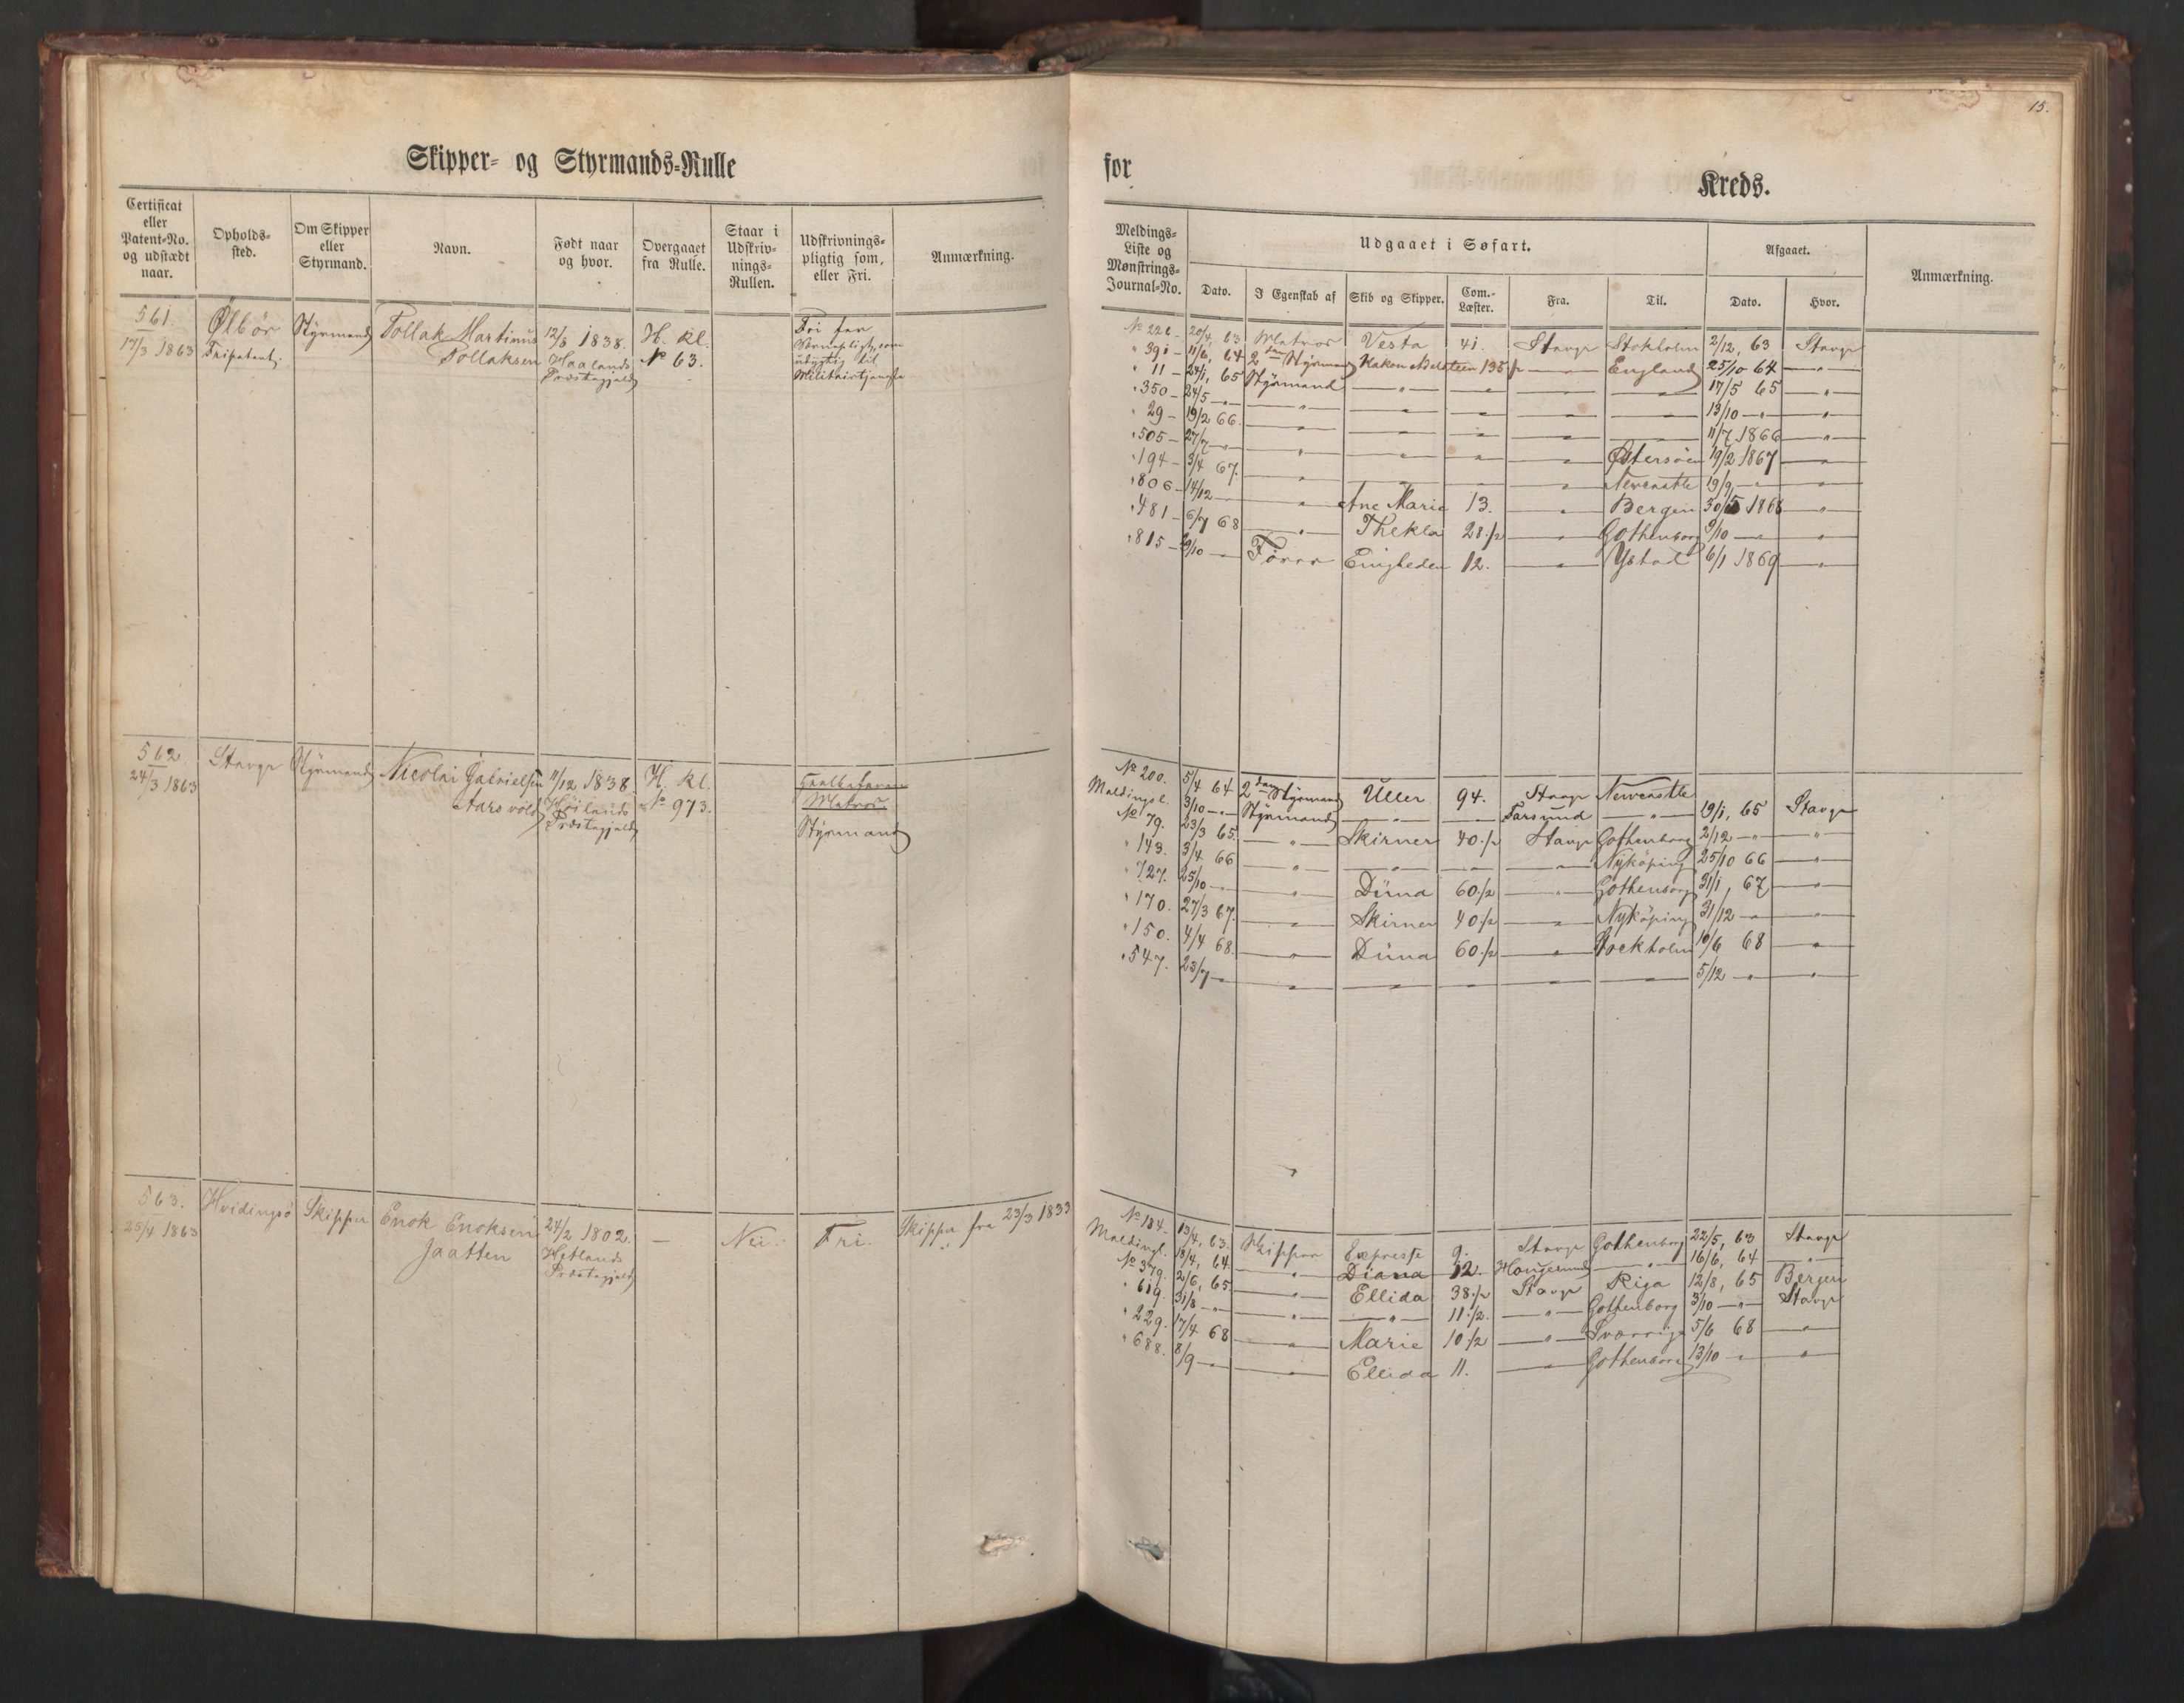 15.
Skipper- og Styrmands-Rulle
for
Kreds.
Certificat eller Patent-No. og udstædt naar.
Opholds-sted.
Om Skipper eller Styrmand.
Navn.
Født naar og hvor.
Overgaaet fra Rulle.
Staar i Udskriv-nings-Rullen.
Udskrivnings-pligtig som, eller Fri.
Anmærkning.
Meldings-Liste og Mønstrings-Journal-No.
Udgaaet i Søfart.
Dato. I Egenskab af Skib og Skipper. Com.-Læster. Fra. Til.
Afgaaet.
Dato. Hvor.
Anmærkning.
561. Ølbør Styrmand Tollak Martinus 12/8 1838. H. kl. Fri for
17/3 1863 Fripatent. Tollaksen Haalands No 63. Værnepligt, som
Præstegjæld udygtig til
Militairtjeneste
No 221. 20/4, 63 Matros Vesta 41. Stavgr Stokholm 2/12, 63 Stavgr
" 391 — 11/6, 64 2den Styrmand Hakon Adelsteen 135 /2 — " — England 25/10 64 — " —
" 11 — 24/1, 65 Styrmand — " — — " — — " — — " — 17/5 65 — " —
" 350 — 24/5 — " — — " — — " — — " — — " — — " — 13/10 — " — — " —
" 29 — 19/2 66. — " — — " — — " — — " — — " — 11/7 1866 — " —
" 505 — 27/7 — " — — " — — " — — " — — " — Østersöen 19/2 1867 — " —
" 194 — 3/4 67. — " — — " — — " — — " — Newcastle 19/9 — " — — " —
" 806 — 14/12 — — " — Ane Marie 13. — " — Bergen 30/5 1868 — " —
" 481 — 6/7 68 — " — Thekla 28 /2 — " — Gothenborg 9/10 — " — — " —
" 815 — /10 — Fører Enigheden 12. — " — Ystad 6/1 1869 — " —
562. Stavgr Styrmand Nicolai Gabrielsen 11/12 1838. H. kl.
24/3 1863 Aarsvold Höilands No 973. Matros
Præstegjæld Styrmand
No 200. 5/4 64 2den Styrmand Uller 94. Stavgr Newcastle
Meldingsl. 3/10 — " — Styrmand — " — — " — Farsund — " — 19/1, 65 Stavgr
No 79. 23/3 65. — " — Skirner 40 /2 Stavgr Gothenborg 2/12 — " — — " —
" 143. 3/4 66 — " — — " — — " — — " — Nyköping 25/10 66 — " —
" 727. 25/10 — " — — " — Düna 60 /2 — " — Gothenborg 31/1, 67 — " —
" 170. 27/3 67. — " — Skirner 40 /2 — " — Nyköping 31/12 — " — — " —
" 150. 4/4 68. — " — Düna 60 /2 — " — Stockholm 10/6 68 — " —
" 547. 23/7 — " — — " — — " — — " — — " — — " — 5/12 — " — — " —
563. Hvidingsö Skipper Enok Enoksen 24/2 1802. — Nei. Fri. Skipper fra 23/3 1833
25/4 1863 Jaatten Hetlands
Præstegjæld
No 184. 13/4, 63. Skipper Expresse 9. Stavgr Gothenborg 22/5, 63 Stavgr
Meldingsl. 18/4, 64 — " — Diana 12. Haugesund — " — 16/6, 64 — " —
No 379. 2/6, 65 — " — Ellida 38 /2 Stavgr Riga 12/8, 65 Bergen
" 619. 31/8 — " — — " — — " — 11 /2. — " — Gothenborg 3/10 — " — Stavgr
" 229. 17/4 68 — " — Marie 10 /2 — " — Sverrige 5/6 68 — " —
" 688. 8/9 — " — — " — Ellida 11. — " — Gothenborg 13/10 — " — — " —